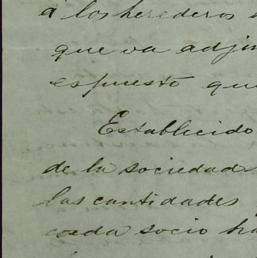 á los herederos
que va adjun
espuesto que
Establecido
de la sociedad
las cantidades
cada socio ha